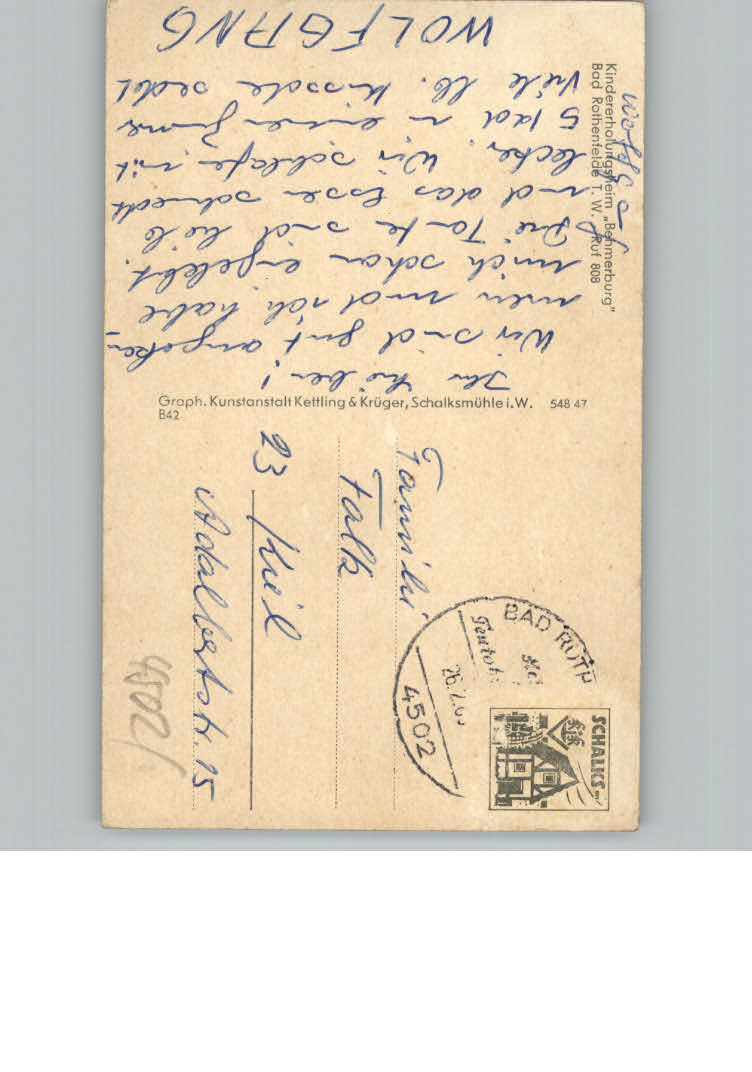 Kindererholungsheim „Behmerburg"
Bad Rothenfelde T. W. Ruf 808
Ihr Lieben!
Wir sind gut angekom-
men und ich habe
mich schon eingelebt.
Die Tante sind liebe
und das Essen schmeckt
lecker. Wir schlafe mit
5 Kid in einem Zimmer
Viele lb. Küsse sendet
WOLFGANG
Graph. Kunstanstalt Kettling & Krüger, Schalksmühle i.W. 548 47
B42
Familie
Falk
23 Kiel
Adalbertstr. 15
4502/
BAD ROTH
26.2.6
4502
SCHALKS